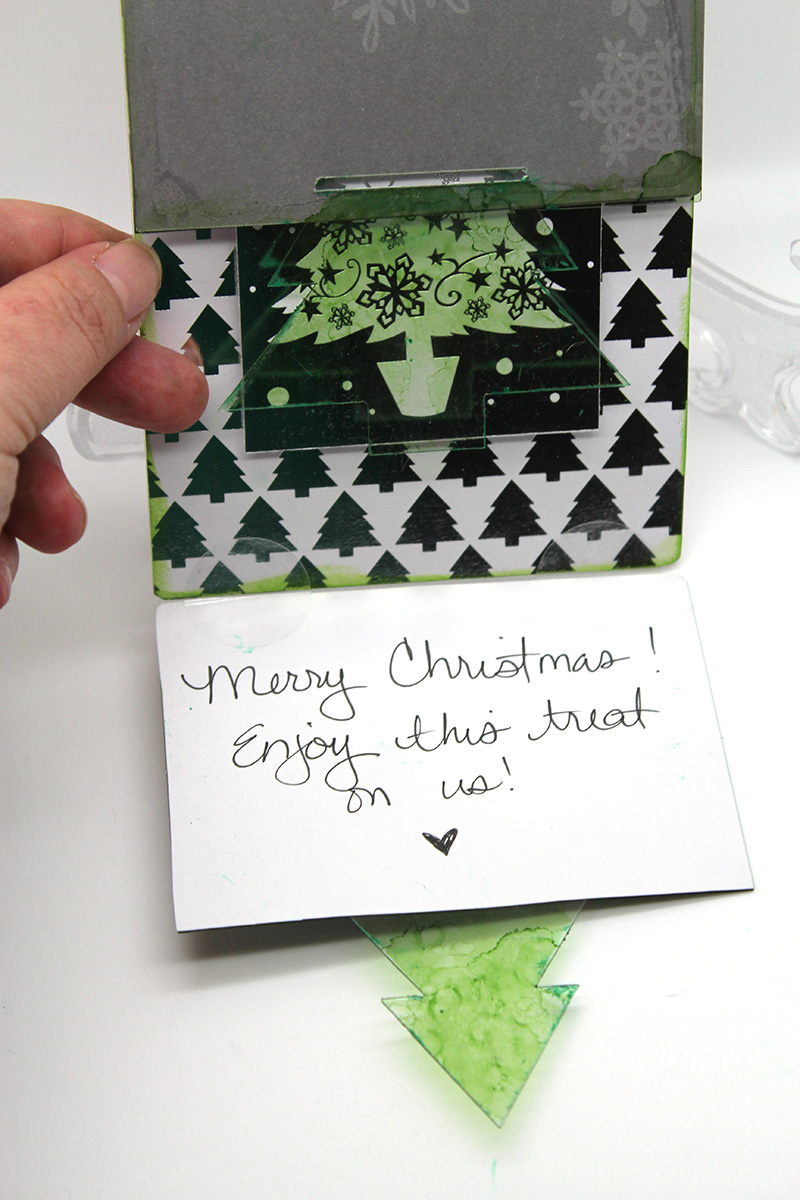 Merry Christmas!
Enjoy this treat
on us!